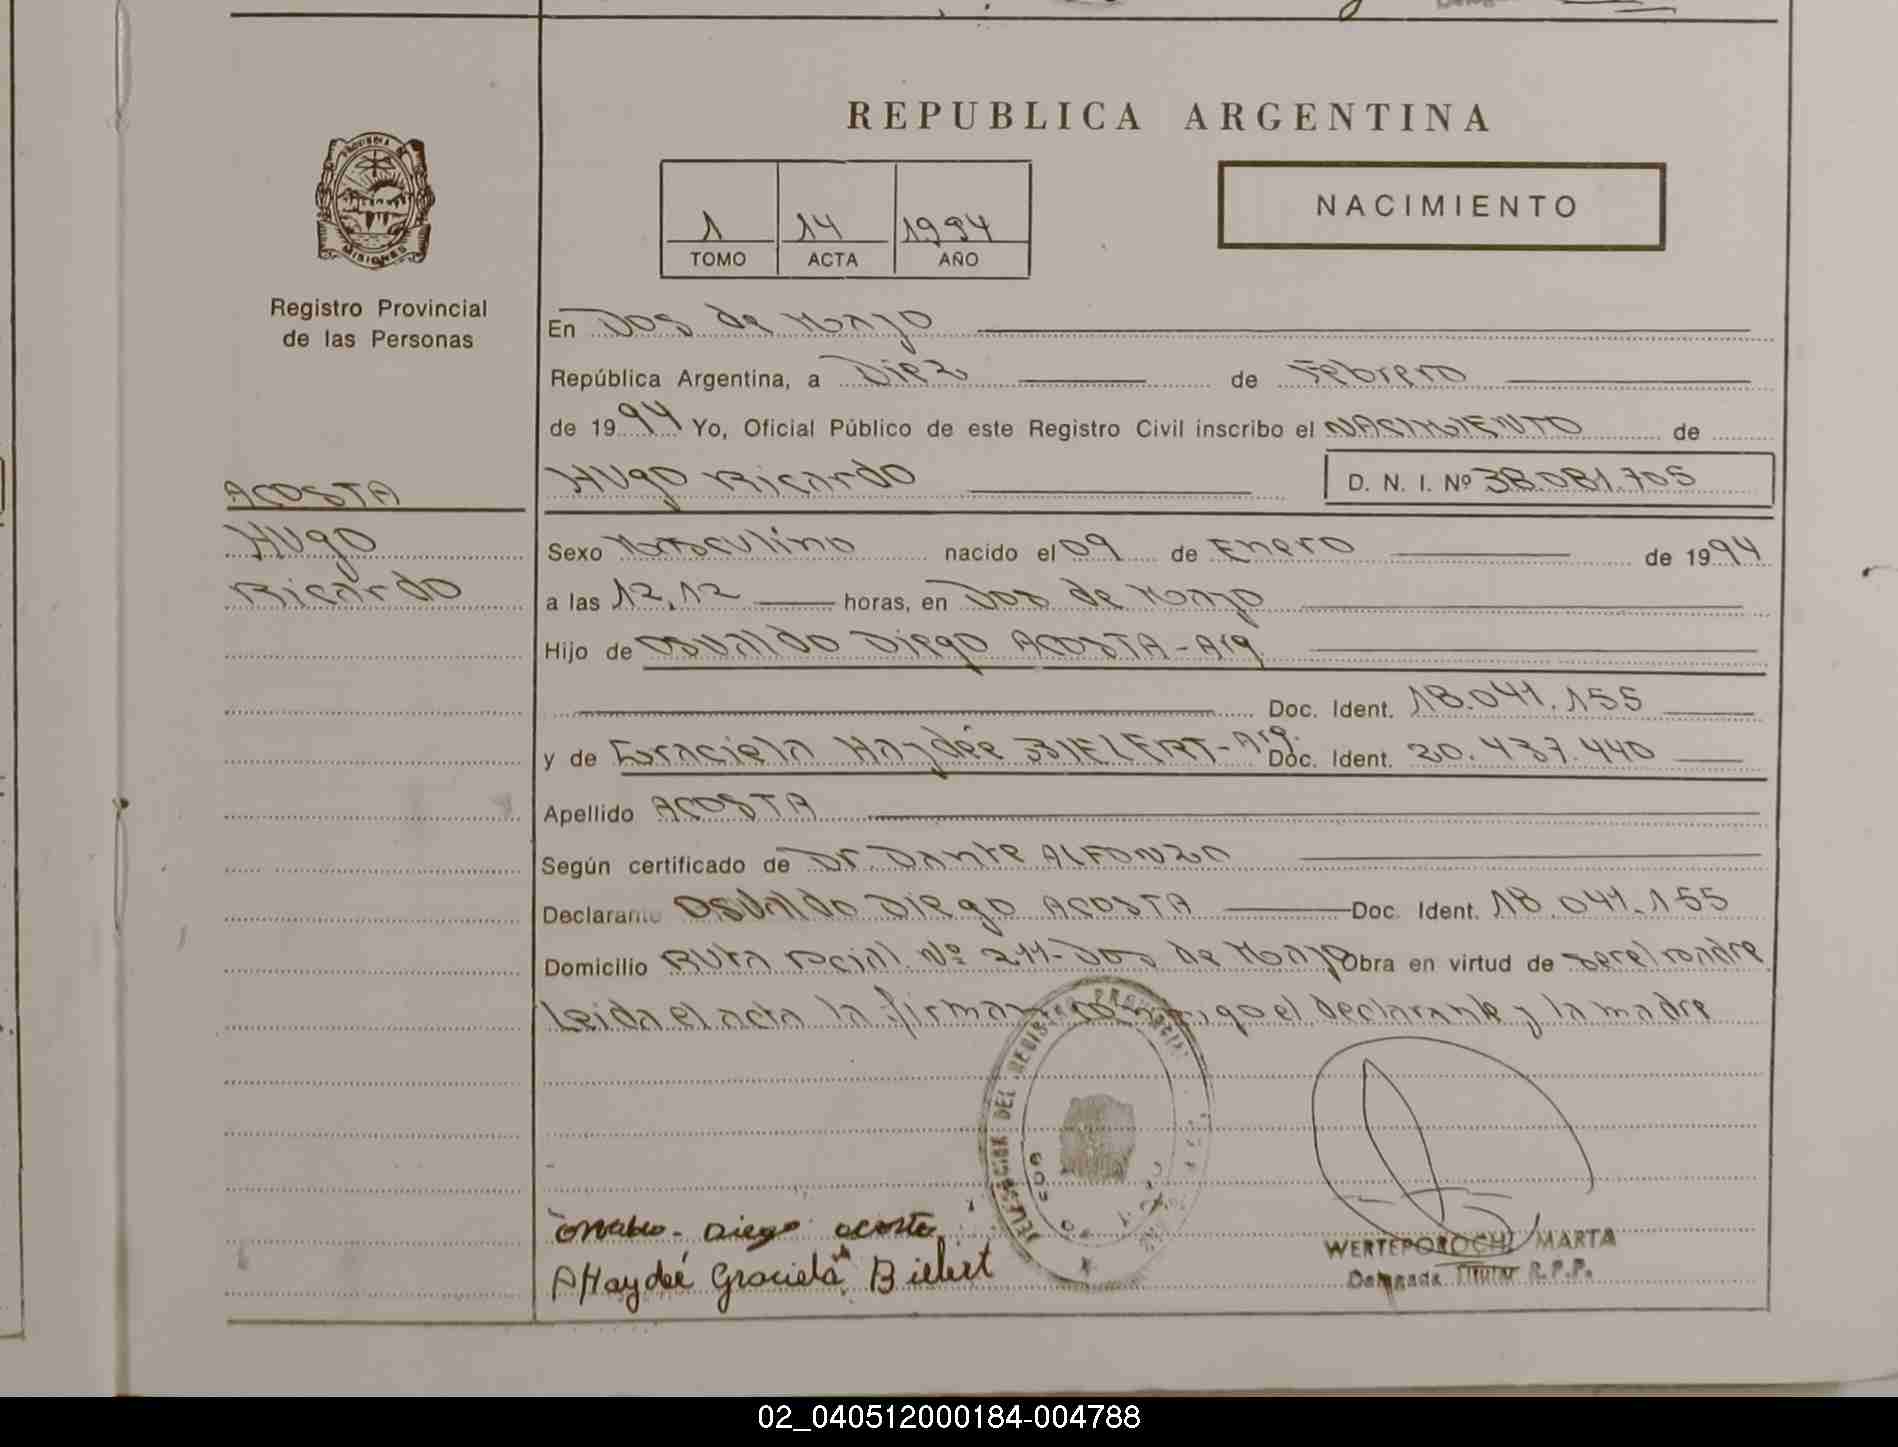 REPUBLICA ARGENTINA
NACIMIENTO
1 14 1994
TOMO ACTA AÑO
PROVINCIA DE
MISIONES
Registro Provincial
de las Personas
En Dos de Mayo
República Argentina, a Diez de Febrero
de 1994 Yo, Oficial Público de este Registro Civil inscribo el NACIMIENTO de
ACOSTA
Hugo Ricardo D. N. I. Nº 38.081.705
Hugo
Sexo Masculino nacido el 09 de Enero de 1994
Ricardo
a las 12,12 horas, en Dos de Mayo
Hijo de Osvaldo Diego ACOSTA-Arg.
Doc. Ident. 18.041.155
y de Graciela Haydée BIELERT-Arg. Doc. Ident. 20.437.440
Apellido ACOSTA
Según certificado de Dr. Dante ALFONZO
Declarante Osvaldo Diego ACOSTA Doc. Ident. 18.041.155
Domicilio Ruta Pcial. Nº 211-Dos de Mayo Obra en virtud de ser el padre
Leida el acta la firman conmigo el declarante y la madre
DELEGACION DEL REGISTRO PROVINCIAL
Diego acosta
Haydeé Graciela Bielert
WERTEPOROCH MARTA
Delegada Titular R.P.P.
02_040512000184-004788